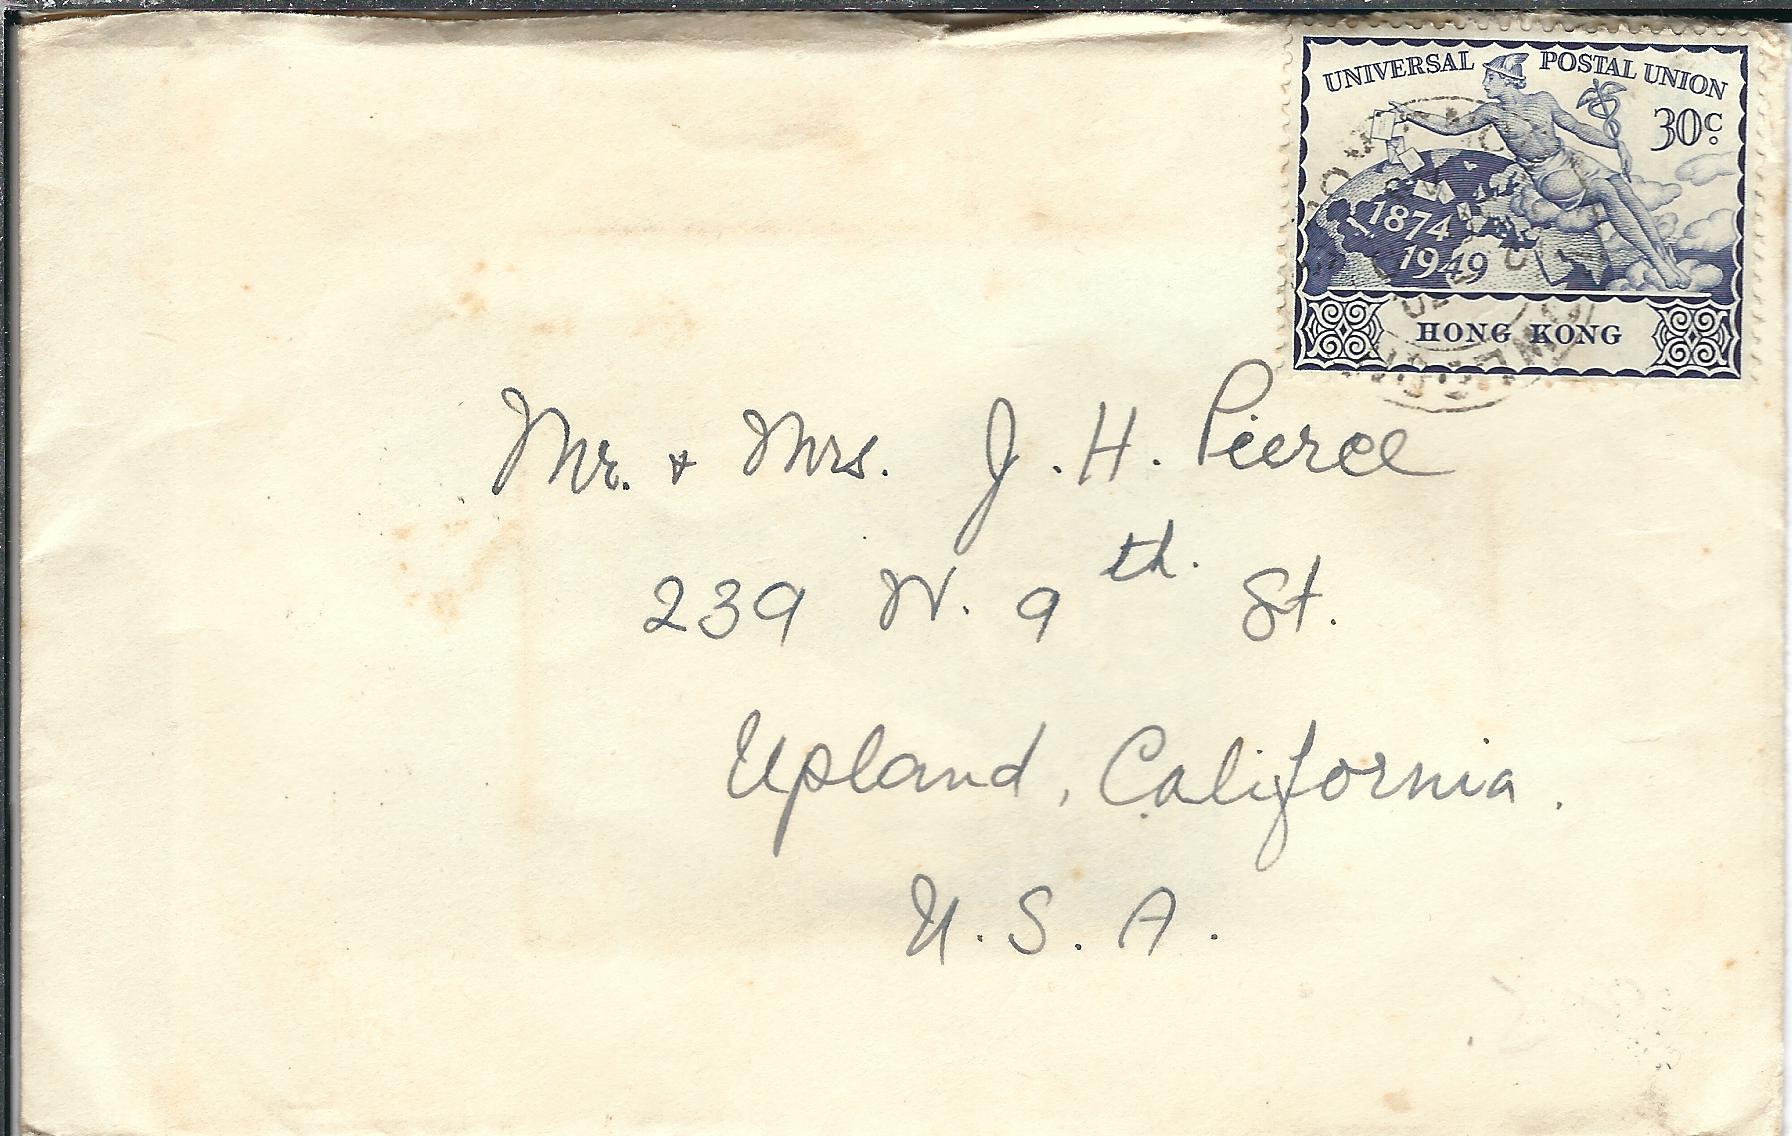 UNIVERSAL POSTAL UNION
30c.
1874
1949
HONG KONG
Mr. + Mrs. J. H. Pierce
239 W. 9th. St.
Upland, California.
U. S. A.